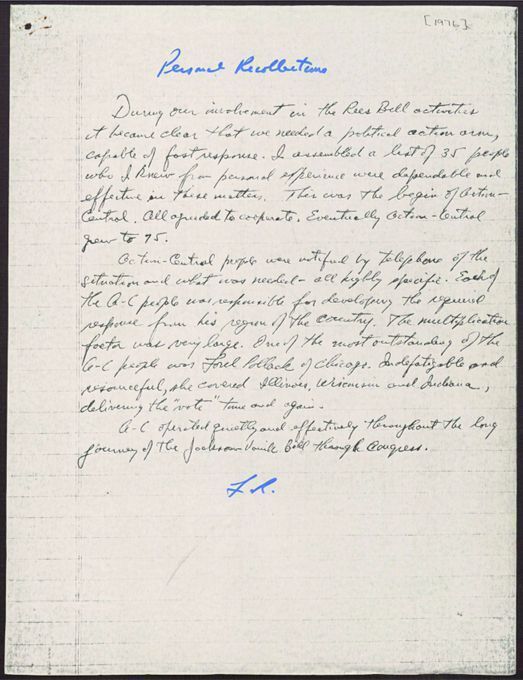 [1976]
Personal Recollections
During our involvement in the Rees Bill activities
it became clear that we needed a political action arm,
capable of fast response. I assembled a list of 35 people
who I knew from personal experience were dependable and
effective in these matters. This was the begin of Action-
Central. All agreed to cooperate. Eventually Action-Central
grew to 75.
Action-Central people were notified by telephone of the
situation and what was needed - all highly specific. Each of
the A-C people was responsible for developing the required
response from his region of the country. The multiplication
factor was very large. One of the most outstanding of the
A-C people was Pollack of Chicago. Indefatigable and
resourceful, she covered Illinois, Wisconsin and Indiana,
delivering the "vote" time and again.
A-C operated quietly and effectively throughout the long
journey of the Jackson-Vanik Bill through Congress.